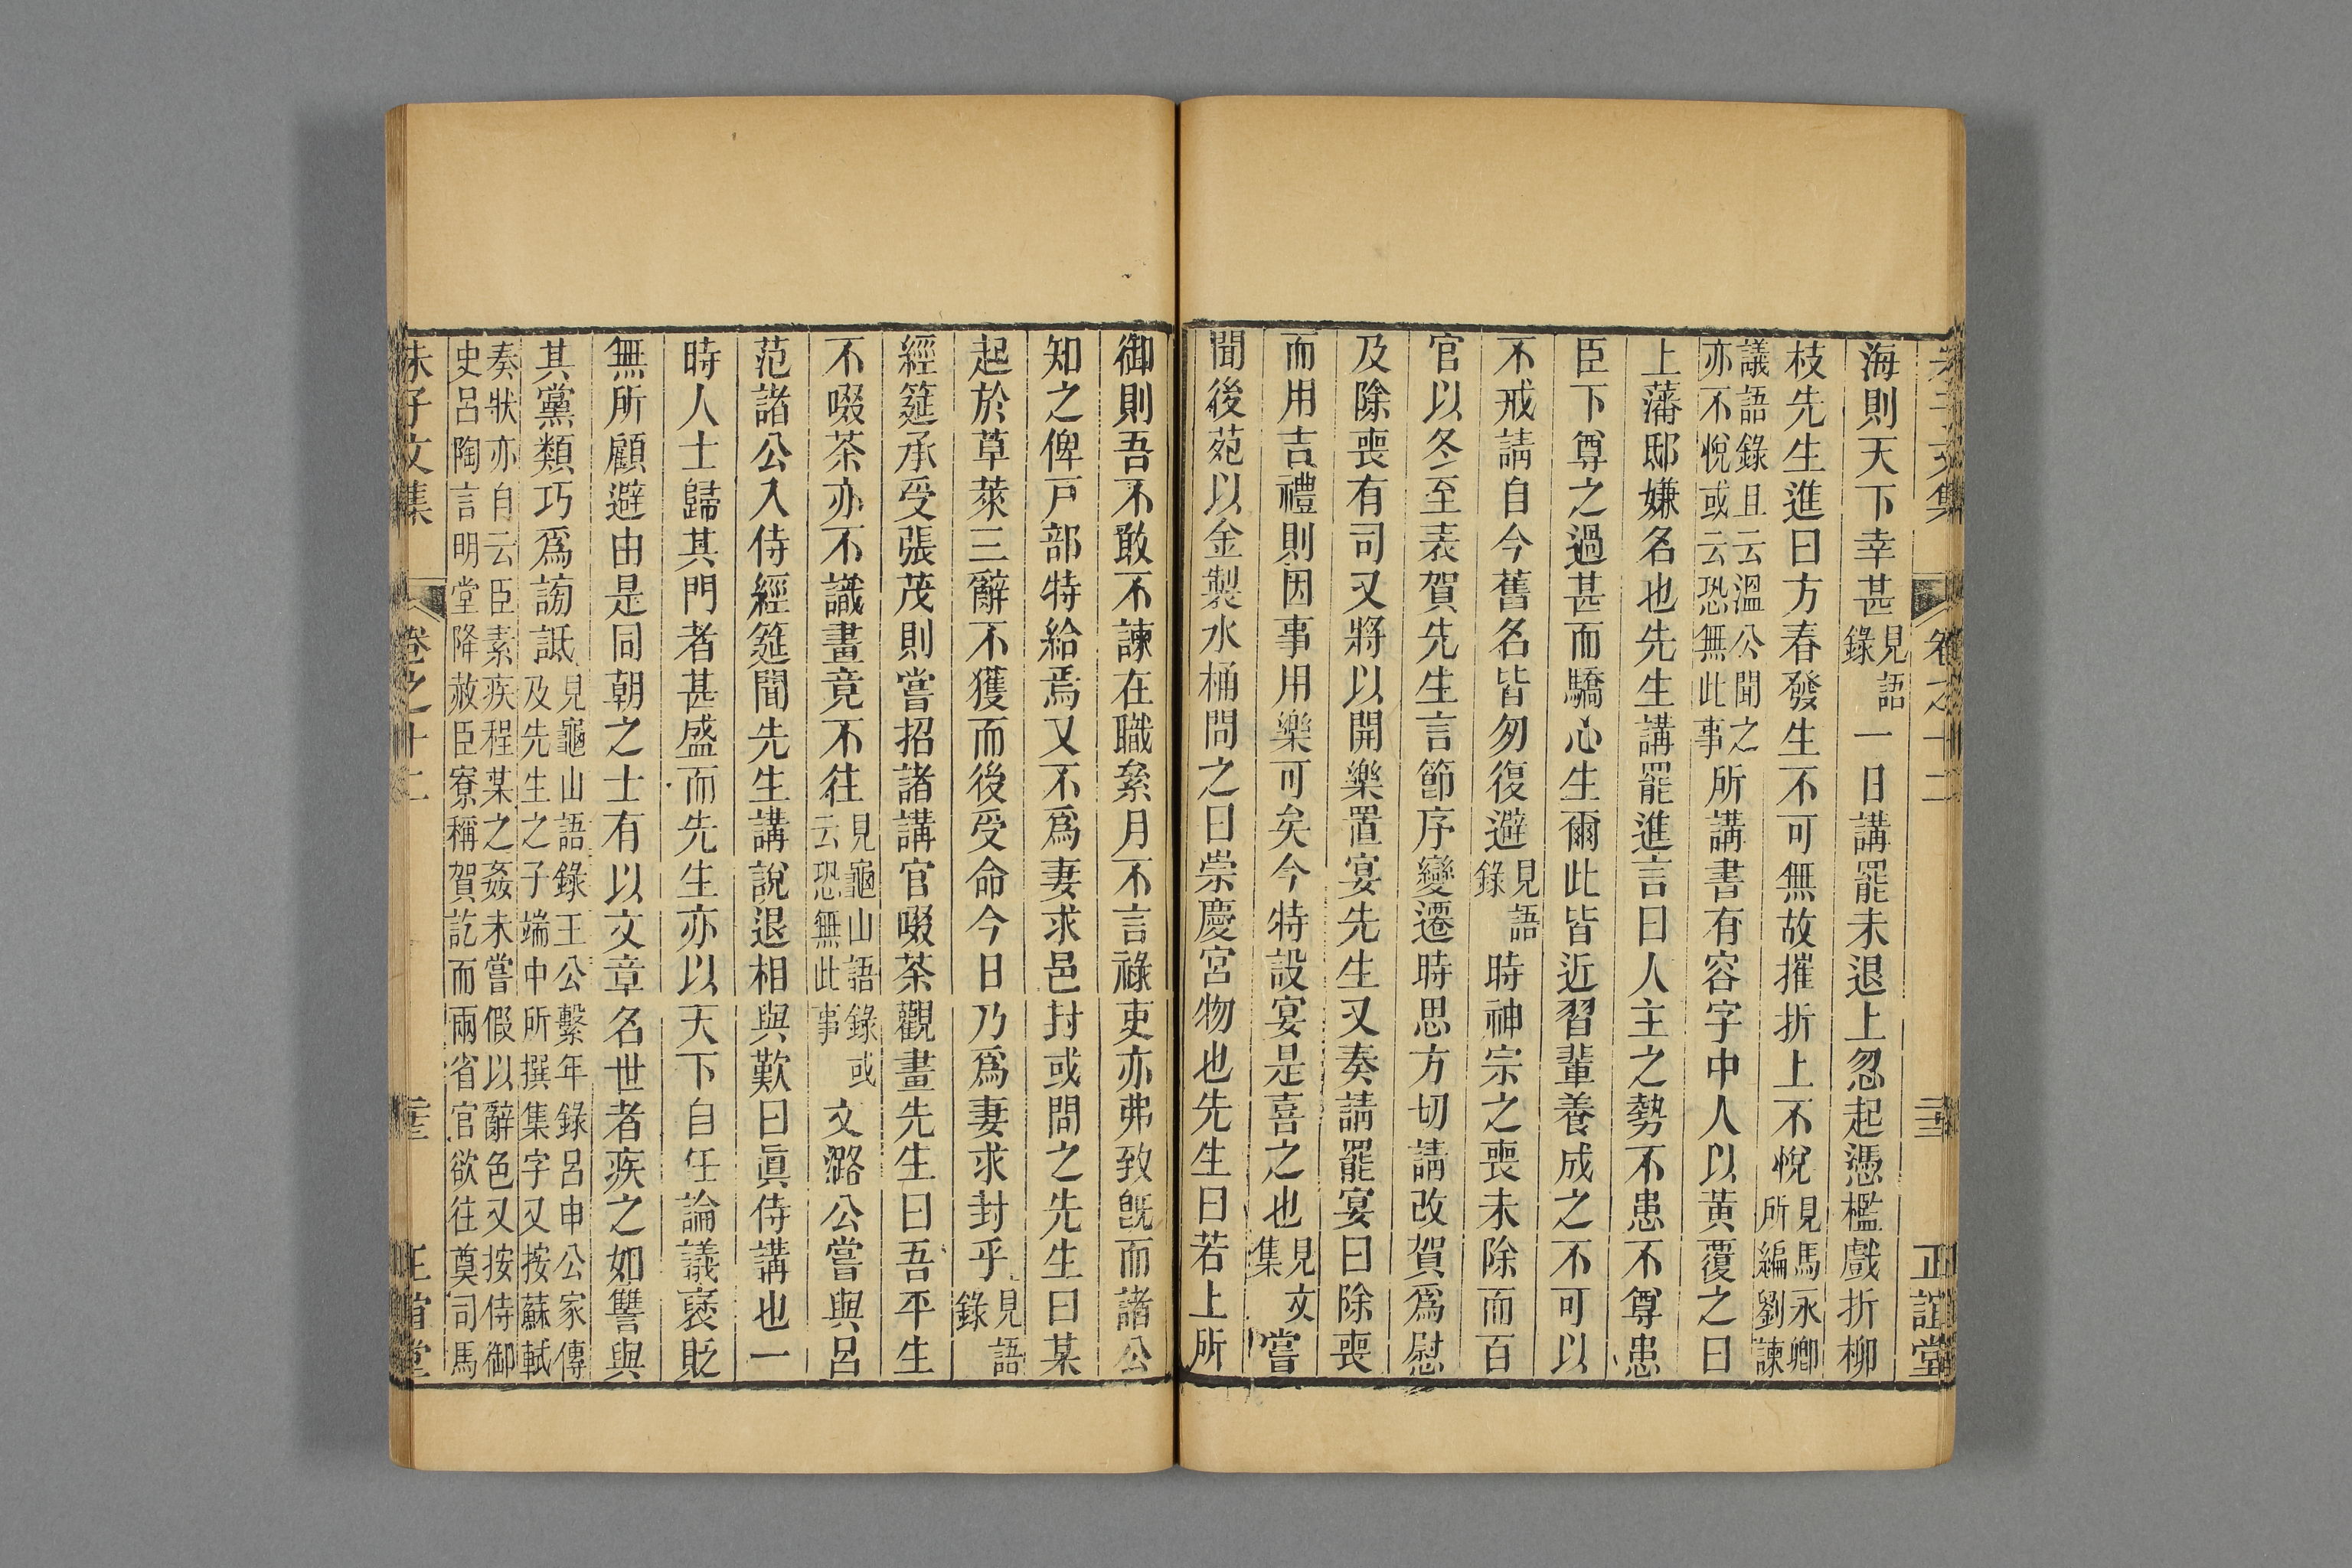 朱子文集 卷之十二 正誼堂
海則天下幸甚見語錄一日講罷未退上忽起憑檻戲折柳
枝先生進曰方春發生不可無故摧折上不悅見馬永卿所編劉諫
議語錄且云溫公聞之亦不悅或云恐無此事所講書有容字中人以黃覆之曰
上藩邸嫌名也先生講罷進言曰人主之勢不患不尊患
臣下尊之過甚而驕心生爾此皆近習輩養成之不可以
不戒請自今舊名皆勿復避見語錄時神宗之喪未除而百
官以冬至表賀先生言節序變遷時思方切請改賀爲慰
及除喪有司又將以開樂置宴先生又奏請罷宴曰除喪
而用吉禮則因事用樂可矣今特設宴是喜之也見文集嘗
聞後苑以金製水桶問之曰崇慶宮物也先生曰若上所
御則吾不敢不諫在職絫月不言祿吏亦弗致旣而諸公
知之俾戸部特給焉又不爲妻求邑封或問之先生曰某
起於草萊三辭不獲而後受命今日乃爲妻求封乎見語錄
經筵承受張茂則嘗招諸講官啜茶觀畫先生曰吾平生
不啜茶亦不識畫竟不往見龜山語錄或云恐無此事文潞公嘗與呂
范諸公入侍經筵聞先生講說退相與歎曰眞侍講也一
時人士歸其門者甚盛而先生亦以天下自任論議褒貶
無所顧避由是同朝之士有以文章名世者疾之如讐與
其黨類巧爲謗詆見龜山語錄王公繫年錄呂申公家傳及先生之子端中所撰集字又按蘇軾
奏狀亦自云臣素疾程某之姦未嘗假以辭色又按侍御史呂陶言明堂降赦臣寮稱賀訖而兩省官欲往奠司馬
朱子文集 卷之十二 正誼堂